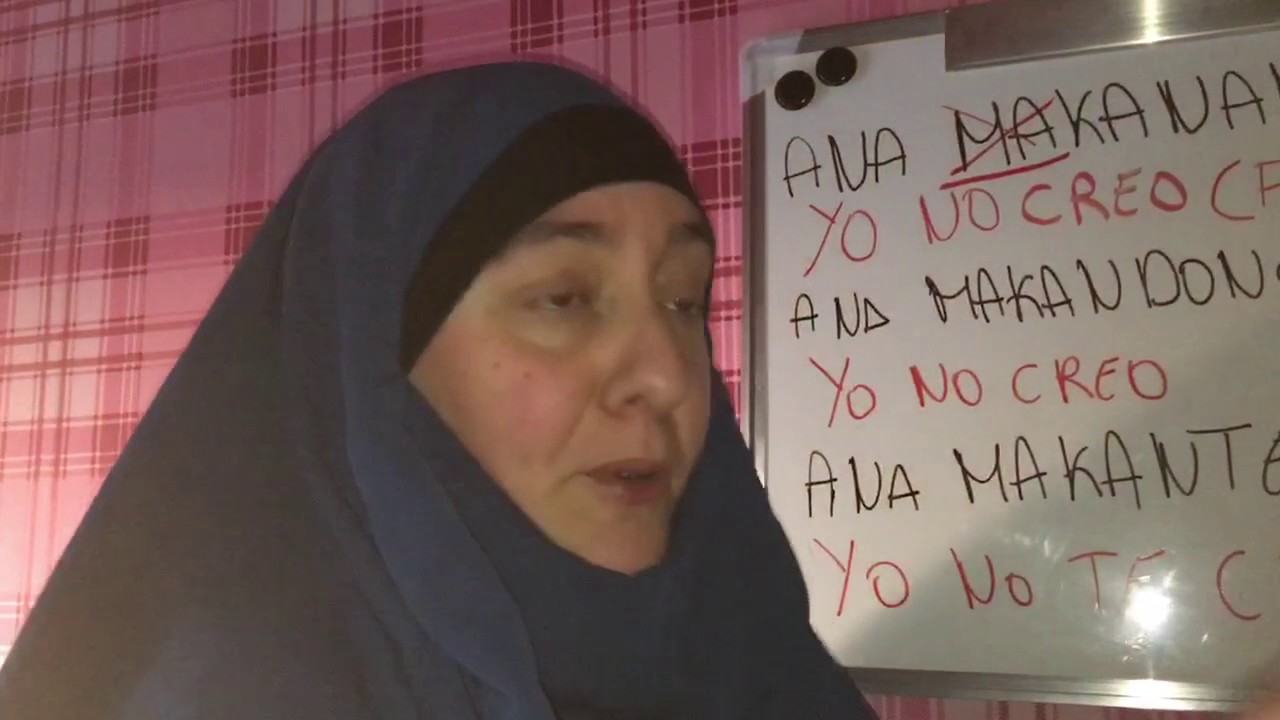 ANA MAKANA
YO NO CREO
ANA MAKANDON
YO NO CREO
ANA MAKANTE
YO NO TE C